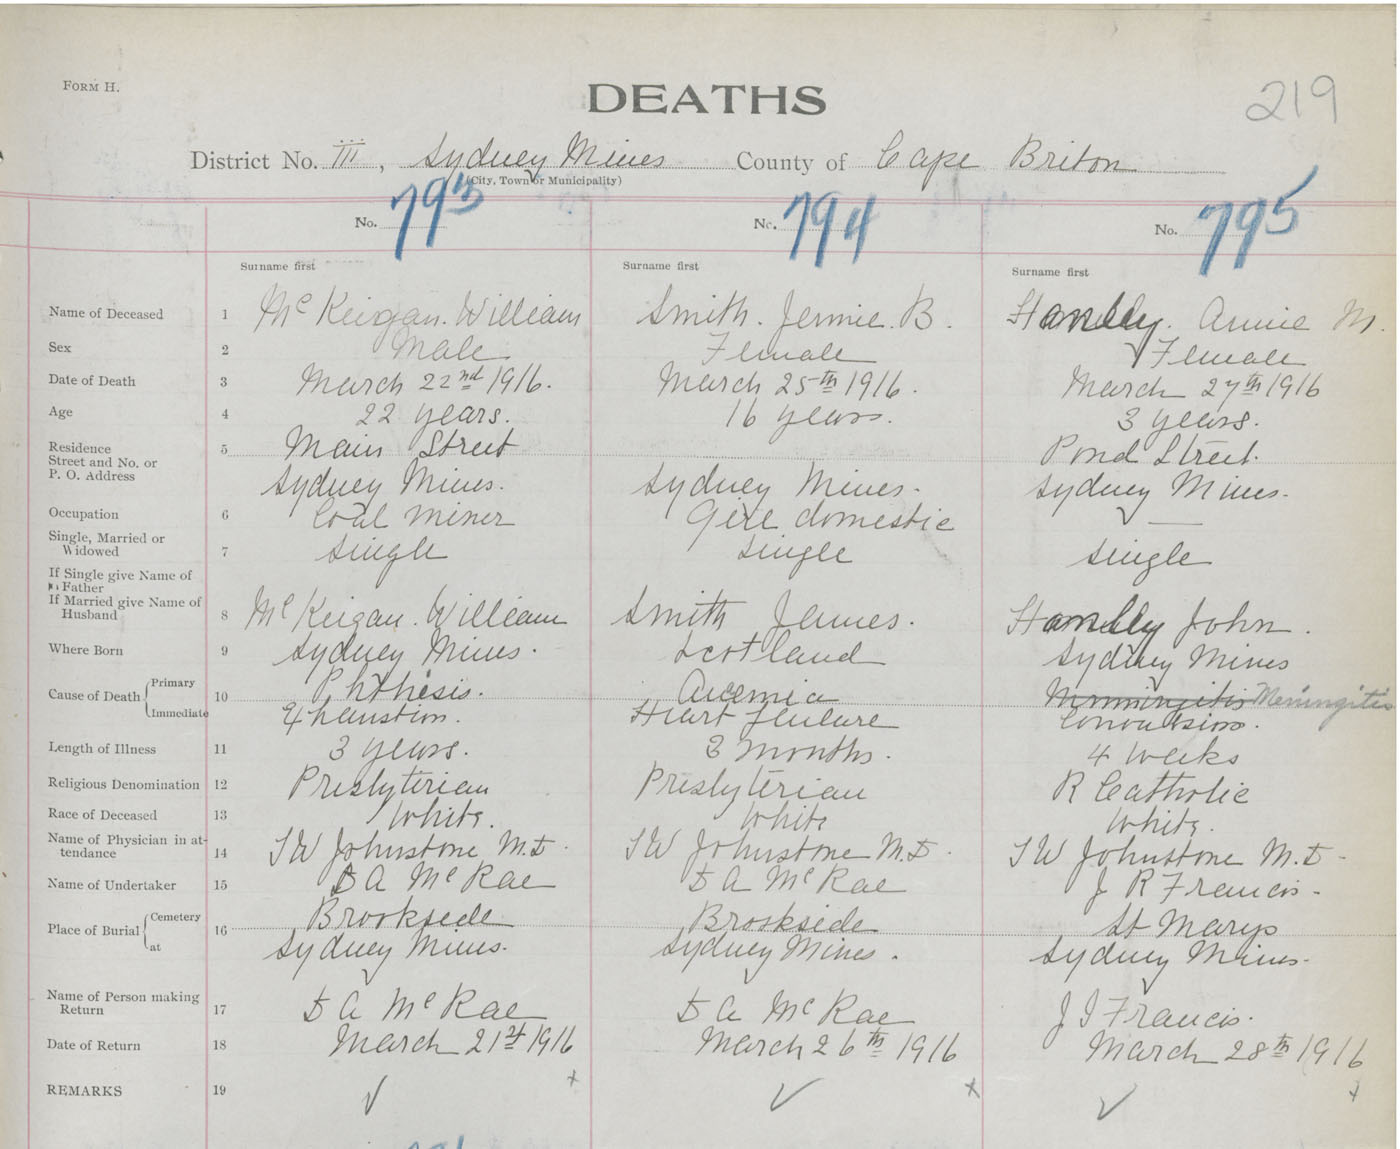 FORM H.
DEATHS
219
District No. III, Sydney Mines County of Cape Briton
(City, Town or Municipality)
No. 793 No. 794 No. 795
Surname first Surname first Surname first
Name of Deceased 1 McKeigan. William Smith. Jennie. B. Handley. Annie M.
Sex 2 Male Female Female
Date of Death 3 March 22nd 1916. March 25th 1916. March 27th 1916
Age 4 22 years. 16 years. 3 years.
Residence 5 Main Street Pond Street.
Street and No. or
P. O. Address Sydney Mines. Sydney Mines. Sydney Mines.
Occupation 6 Coal miner Girl domestic —
Single, Married or
Widowed 7 single single single
If Single give Name of
Father
If Married give Name of
Husband 8 McKeigan. William Smith James. John.
Where Born 9 Sydney Mines. Scotland Sydney Mines
Cause of Death Primary 10 Phthisis. Anemia Meningitis
Immediate Exhaustion. Heart Failure Convulsion.
Length of Illness 11 3 years. 3 months. 4 weeks
Religious Denomination 12 Presbyterian Presbyterian R Catholic
Race of Deceased 13 White. White White.
Name of Physician in at-
tendance 14 Johnstone M.D. Johnstone M.D. Johnstone M.D.
Name of Undertaker 15 D A McRae D A McRae J R Francis.
Place of Burial Cemetery 16 Brookside Brookside St Marys
at Sydney Mines. Sydney Mines. Sydney Mines.
Name of Person making
Return 17 D A McRae D A McRae J J Francis.
Date of Return 18 March 21st 1916 March 26th 1916 March 28th 1916
REMARKS 19 ✓ x ✓ x ✓ x